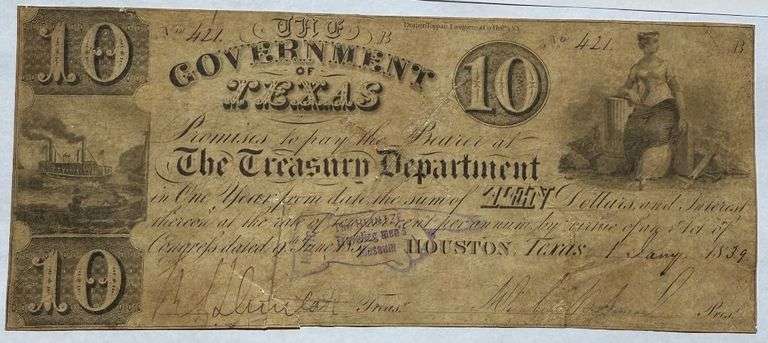 10
No 421. THE B
Draper, Toppan, Longacre & Co. Phila. & N.Y.
No 421. B
GOVERNMENT
OF
TEXAS
10
Promises to pay the Bearer at
The Treasury Department
in One Year from date the sum of Dollars and Interest
thereon at the rate of ten per cent per annum by virtue of an Act of
Congress dated 9th June 1837 HOUSTON, Texas, 1 Jany 1839
10
Treasr. Prest.
Museum